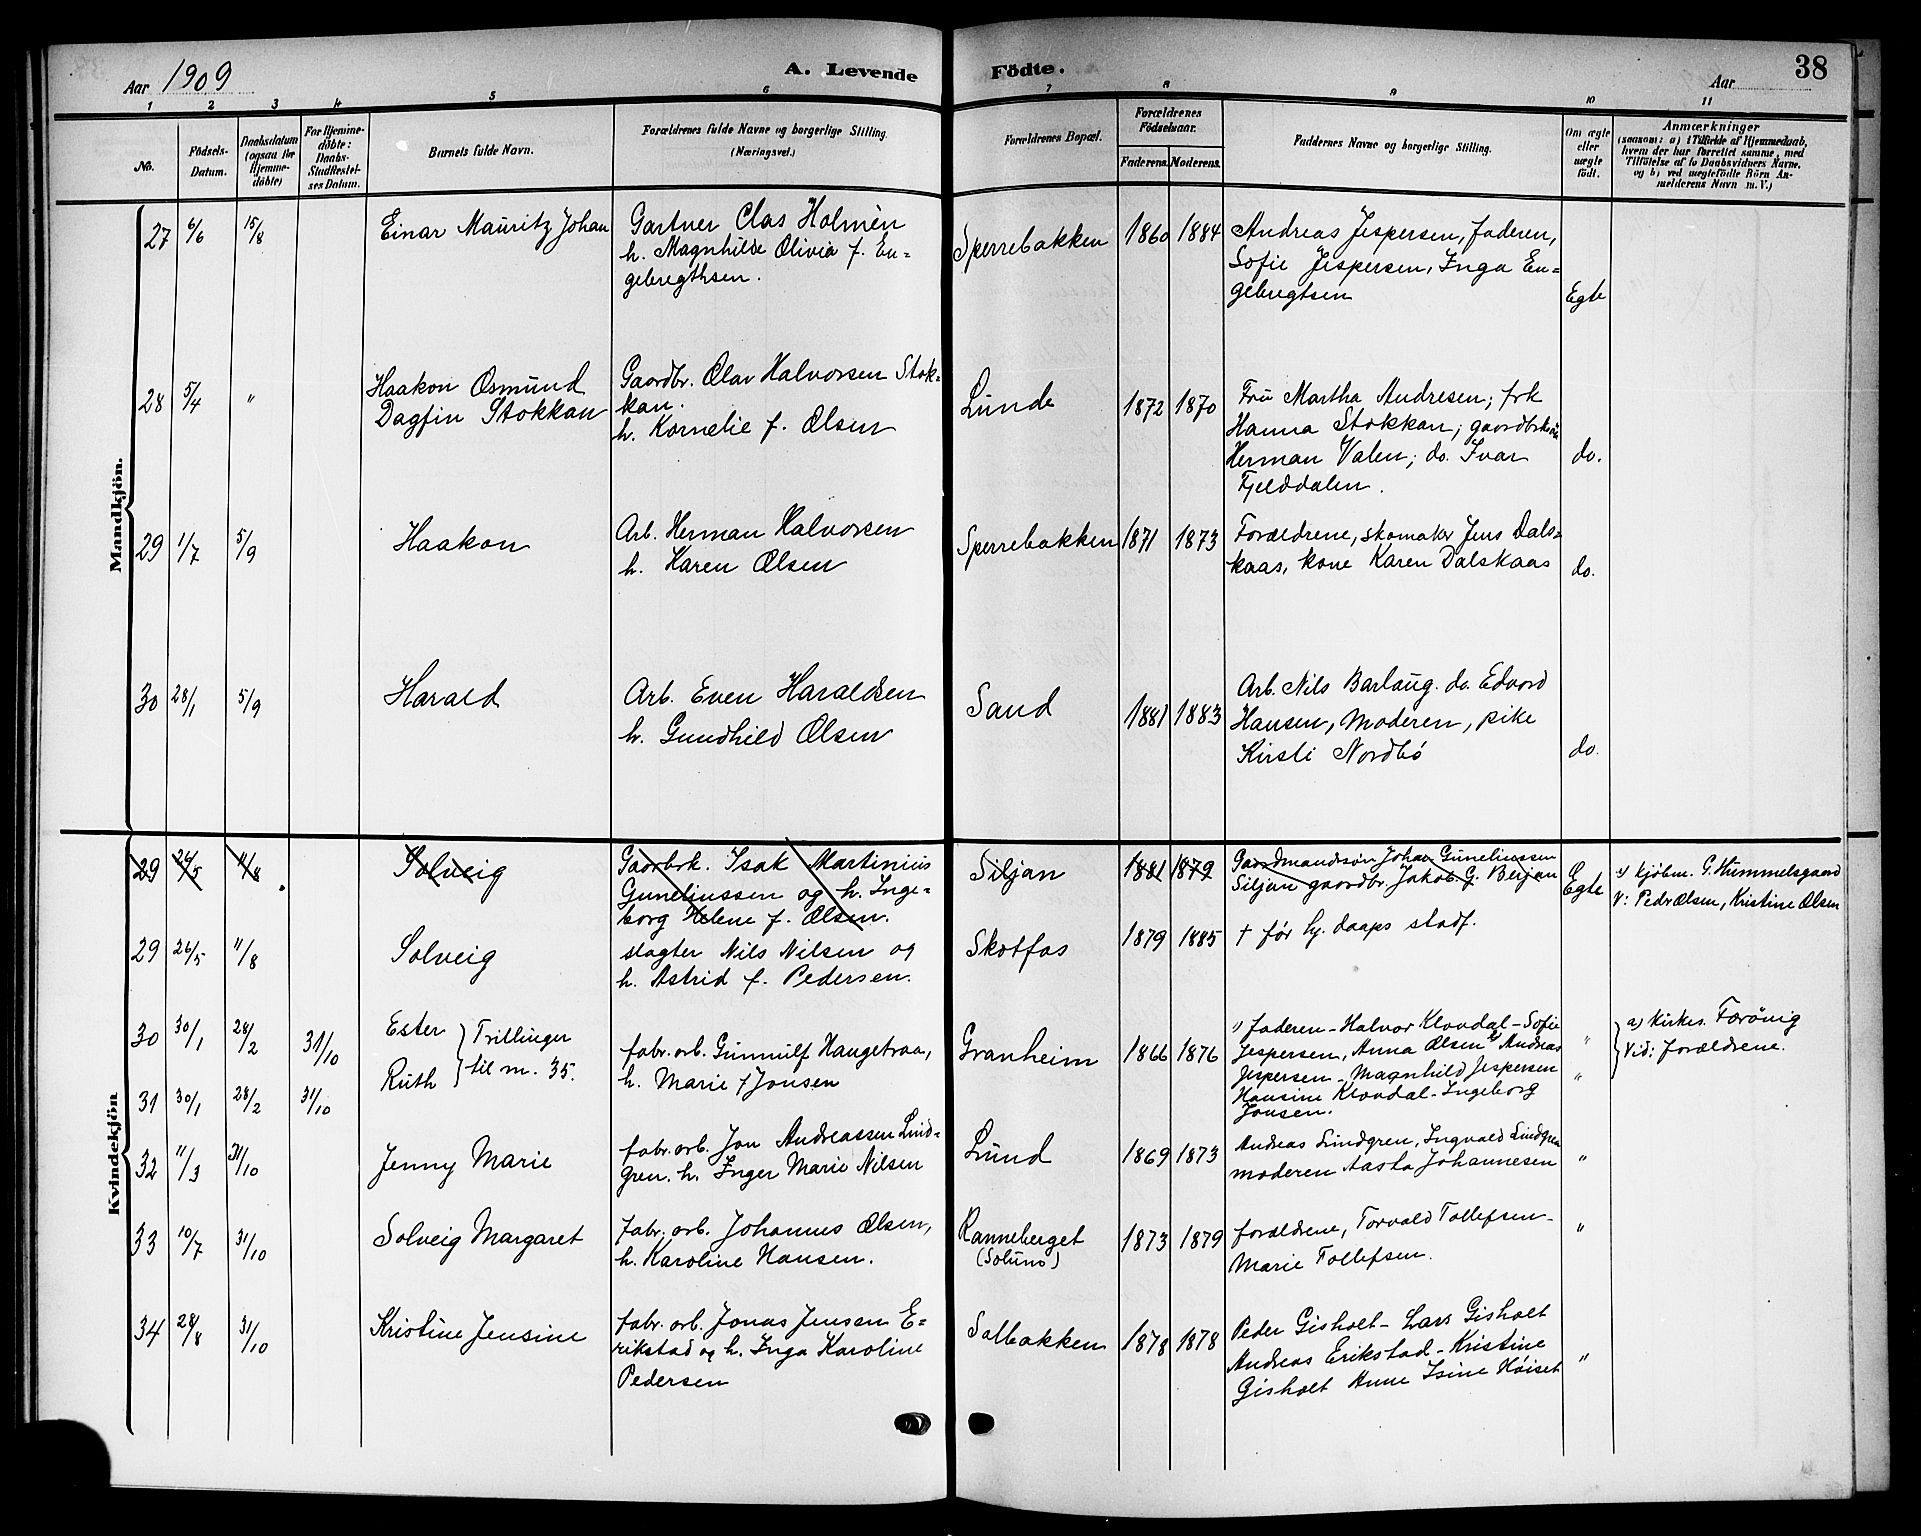 Aar 1909
A. Levende
Födte.
Aar
38
1 2 3 4 5 6 7 8 9 10 11
No.
Födsels-
Datum.
Daabsdatum
(ogsaa for
Hjemme-
döbte)
For Hjemme-
döbte:
Daabs-
Stadfæstel-
ses Datum.
Barnets fulde Navn.
Forældrenes fulde Navne og borgerlige Stilling.
(Næringsvei.)
Forældrenes Bopæl.
Forældrenes
Födselsaar.
Faderens. Moderens.
Faddernes Navne og borgerlige Stilling.
Om ægte
eller
uægte
födt.
Anmærkninger
(saasom: a) i Tilfælde af Hjemmedaab,
hvem der har forrettet samme, med
Tilföielse af to Daabsvidners Navne.
og b) ved uægtefödte Börn An-
melderens Navn m. V.)
Mandkjön.
27 6/6 15/8 Einar Mauritz Johan
Gartner Clas Holmèn
h. Magnhilde Olivia f. En=
gebregthsen.
Sperrebakken 1860 1884
Andreas Jespersen, faderen,
Sofie Jespersen, Inga En=
gebregtsen
Egte
28 5/4 "
Haakon Osmund
Dagfin Stokkan
Gaardbr. Olav Halvorsen Stok-
kan.
h. Kornelie f. Olsen
Lunde 1872 1870
Fru Martha Andresen; frk
Hanna Stokkan; gaardbr
Herman Valen; do. Ivar
Fjelddalen.
do.
29 1/7 5/9 Haakon
Arb. Herman Halvorsen
h. Karen Olsen
Sperrebakken 1871 1873
Forældrene, skomaker Jens Dals=
kaas, kone Karen Dalskaas
do.
30 28/1 5/9 Harald
Arb. Even Haraldsen
h. Gundhild Olsen
Sand 1881 1883
Arb. Nils Barlaug. do. Edvard
Hansen, Moderen, pike
Kirsti Nordbö
do.
Kvindekjön
29 26/5 11/8 Solveig
Gaardbrk. Isak Martinius
Guneliussen og h. Inge-
borg Helene f. Olsen.
Siljan 1881 1879
Gaardmandssøn Johan Guneliussen
Siljan gaardbr. Jakob G. Berjan
Egte
kjøbm. G. Hummelsgaard
V: Pedr Olsen, Kristine Olsen
29 26/5 11/8 Solveig
slagter Nils Nilsen og
h. Astrid f. Pedersen.
Skotfos 1879 1885
† før hj. daaps stadf.
30 30/1 28/2 31/10
Ester
Ruth
Trillinger
til nr. 35.
31 30/1 28/2 31/10
fabr. arb. Gunnulf Haugetraa,
h. Marie f Jonsen
Granheim 1866 1876
1) faderen - Halvor Klovdal - Sofie
Jespersen, Anna Olsen 2) Andreas
Jespersen - Magnhild Jespersen
Hansine Klovdal - Ingeborg
Jonsen.
"
"
a) Kirkes. Farönig
Vid: forældrene.
32 11/3 31/10 Jenny Marie
fabr. arb. Jon Andreassen Lind=
gren. h. Inger Marie Nilsen
Lund 1869 1873
Andreas Lindgren, Ingvald Lindgren
moderen Aasta Johannesen
"
33 10/7 31/10 Solveig Margaret
fabr. arb. Johannes Olsen,
h. Karoline Hansen.
Ranneberget
(Solum)
1873 1879
forældrene, Torvald Tollefsen -
Marie Tollefsen.
"
34 28/8 31/10 Kristine Jensine
fabr. arb. Jonas Jensen E=
rikstad og h. Inga Karoline
Pedersen
Solbakken 1878 1878
Peder Gisholt - Lars Gisholt
Andreas Erikstad - Kristine
Gisholt Anne Isine Höiset
"